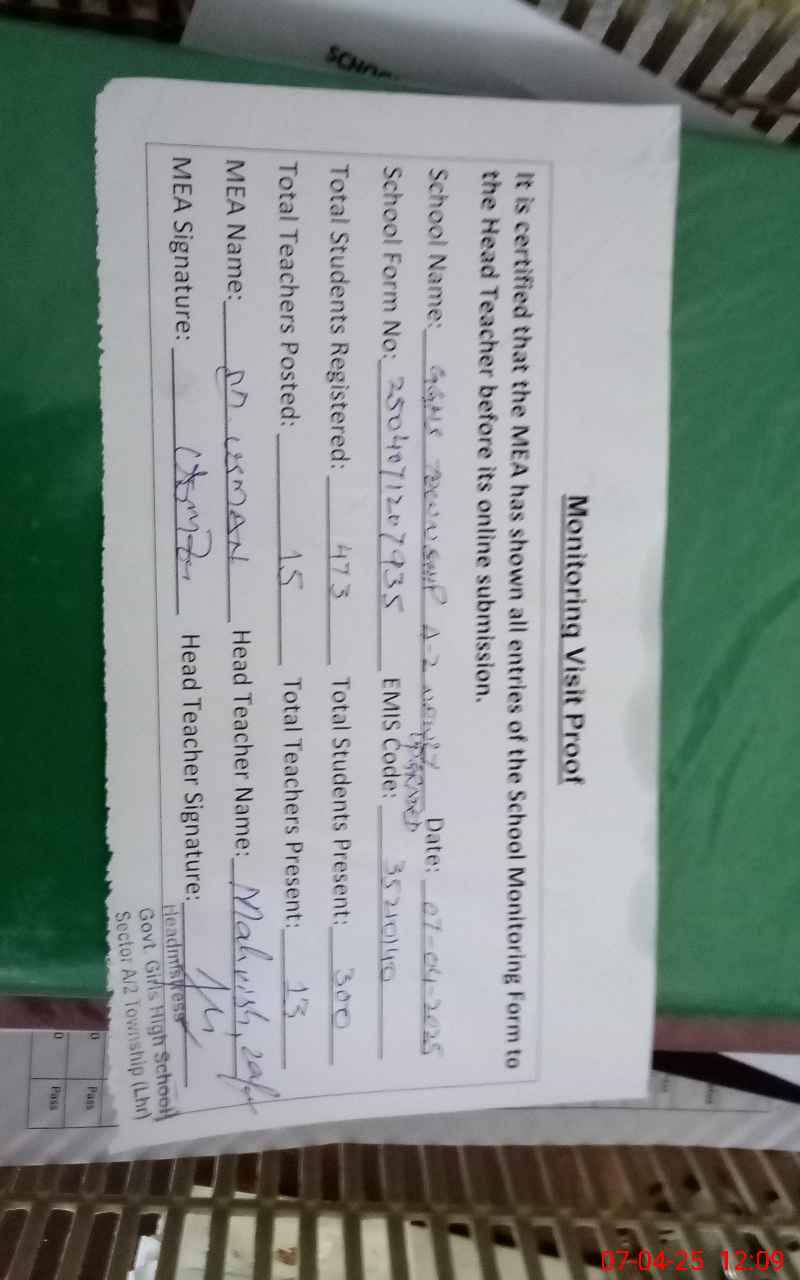 SCHOO
Monitoring Visit Proof
It is certified that the MEA has shown all entries of the School Monitoring Form to
the Head Teacher before its online submission.
School Name: GGHS TOWNSHIP A-2 NEWLY UPGRADED Date: 07-04-2025
School Form No: 2504071207935 EMIS Code: 35210140
Total Students Registered: 473 Total Students Present: 300
Total Teachers Posted: 15 Total Teachers Present: 13
MEA Name: USMAN Head Teacher Name: Mahvish
MEA Signature: Head Teacher Signature:
Headmistress
Govt. Girls High School
Sector A/2 Township (Lhr)
0 Pass
0 Pass
07-04-25 12:09